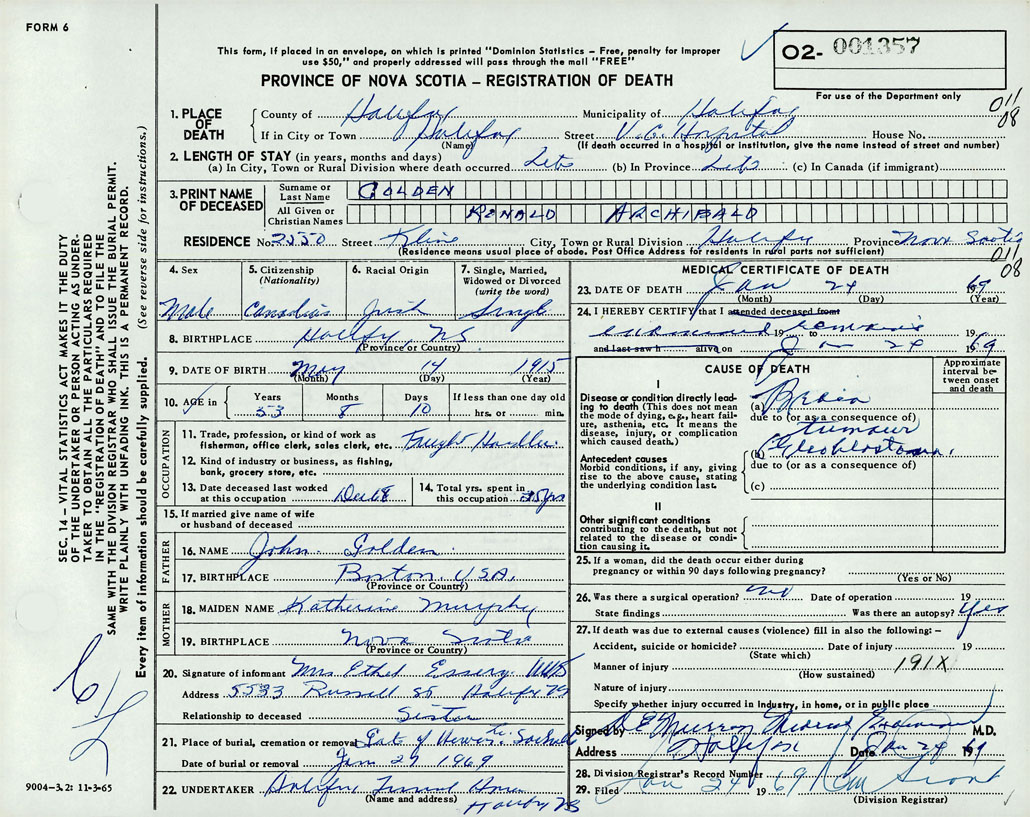 FORM 6
This form, if placed in an envelope, on which is printed "Dominion Statistics – Free, penalty for improper
use $50," and properly addressed will pass through the mail "FREE"
PROVINCE OF NOVA SCOTIA – REGISTRATION OF DEATH
O2- 001357
For use of the Department only
011
08
1. PLACE OF DEATH
County of Halifax Municipality of Halifax
If in City or Town Halifax Street V.G. Hospital House No.
(Name) (If death occurred in a hospital or institution, give the name instead of street and number)
2. LENGTH OF STAY (in years, months and days)
(a) In City, Town or Rural Division where death occurred Life (b) In Province Life (c) In Canada (if immigrant)
3. PRINT NAME OF DECEASED
Surname or Last Name GOLDEN
All Given or Christian Names RONALD ARCHIBALD
RESIDENCE No. 2550 Street Kline City, Town or Rural Division Halifax Province Nova Scotia
(Residence means usual place of abode. Post Office Address for residents in rural parts not sufficient)
011
08
4. Sex
Male
5. Citizenship (Nationality)
Canadian
6. Racial Origin
Irish
7. Single, Married, Widowed or Divorced (write the word)
Single
8. BIRTHPLACE Halifax, NS
(Province or Country)
9. DATE OF BIRTH May 14 1915
(Month) (Day) (Year)
10. AGE in
Years Months Days If less than one day old
53 8 10 hrs. or min.
OCCUPATION
11. Trade, profession or kind of work as
fisherman, office clerk, sales clerk, etc. Freight Handler
12. Kind of industry or business, as fishing,
bank, grocery store, etc.
13. Date deceased last worked
at this occupation Dec 68
14. Total yrs. spent in
this occupation 25 yrs
15. If married give name of wife
or husband of deceased
FATHER
16. NAME John Golden
17. BIRTHPLACE Boston, U.S.A.
(Province or Country)
MOTHER
18. MAIDEN NAME Katherine Murphy
19. BIRTHPLACE Nova Scotia
(Province or Country)
20. Signature of informant Mrs Ethel Essery
Address 5533 Russell St Halifax NS
Relationship to deceased Sister
21. Place of burial, cremation or removal Gate of Heaven Sackville
Date of burial or removal Jan 27 1969
22. UNDERTAKER Halifax Funeral Home
(Name and address) Halifax NS
MEDICAL CERTIFICATE OF DEATH
23. DATE OF DEATH Jan 24 1969
(Month) (Day) (Year)
24. I HEREBY CERTIFY that I attended deceased from
examined remains 19 to 19
and last saw h alive on Jan 24 1969
CAUSE OF DEATH
Approximate interval between onset and death
I
Disease or condition directly leading
to death (This does not mean
the mode of dying, e.g., heart failure,
asthenia, etc. It means the
disease, injury, or complication
which caused death.)
(a) Brain
due to (or as a consequence of)
tumour
Antecedent causes
Morbid conditions, if any, giving
rise to the above cause, stating
the underlying condition last.
(b) Glioblastoma.
due to (or as a consequence of)
(c)
II
Other significant conditions
contributing to the death, but not
related to the disease or condition
causing it.
25. If a woman, did the death occur either during
pregnancy or within 90 days following pregnancy?
(Yes or No)
26. Was there a surgical operation? no Date of operation 19
State findings Was there an autopsy? Yes
27. If death was due to external causes (violence) fill in also the following: –
Accident, suicide or homicide? Date of injury 19
(State which)
Manner of injury 191X
(How sustained)
Nature of injury
Specify whether injury occurred in industry, in home, or in public place
Signed by Murray Medical Examiner M.D.
Address Halifax Date Jan 24 1969
28. Division Registrar's Record Number
29. Filed Jan 24 1969
(Division Registrar)
SEC. 14 – VITAL STATISTICS ACT MAKES IT THE DUTY
OF THE UNDERTAKER OR PERSON ACTING AS UNDER-
TAKER TO OBTAIN ALL THE PARTICULARS REQUIRED
IN THE "REGISTRATION OF DEATH" AND TO FILE THE
SAME WITH THE DIVISION REGISTRAR WHO SHALL ISSUE THE BURIAL PERMIT.
WRITE PLAINLY WITH UNFADING INK. THIS IS A PERMANENT RECORD.
Every item of information should be carefully supplied. (See reverse side for instructions.)
9004-3.2: 11-3-65